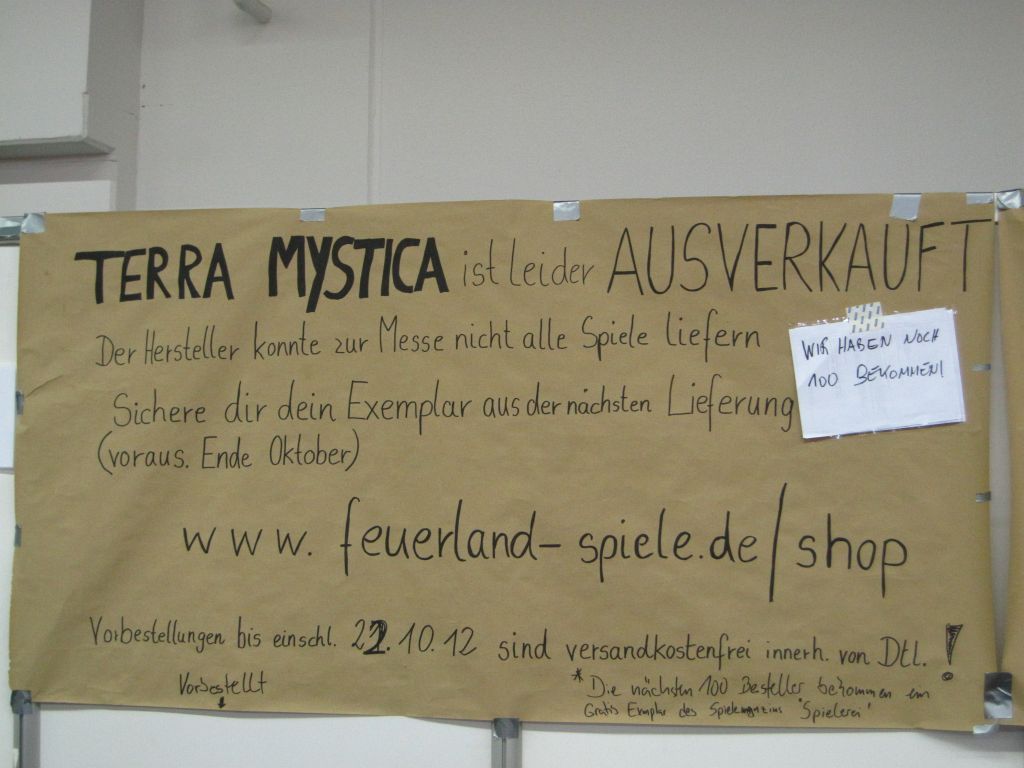 TERRA MYSTICA ist leider AUSVERKAUFT
Der Hersteller konnte zur Messe nicht alle Spiele liefern
WIR HABEN NOCH
100 BEKOMMEN!
Sichere dir dein Exemplar aus der nächsten Lieferung
(voraus. Ende Oktober)
www.feuerland-spiele.de/shop
Vorbestellungen bis einschl. 22.10.12 sind versandkostenfrei innerh. von Dtl.!
Vorbestellt
* Die nächsten 100 Besteller bekommen ein
Gratis Exemplar des Spielemagazins "Spielerei"